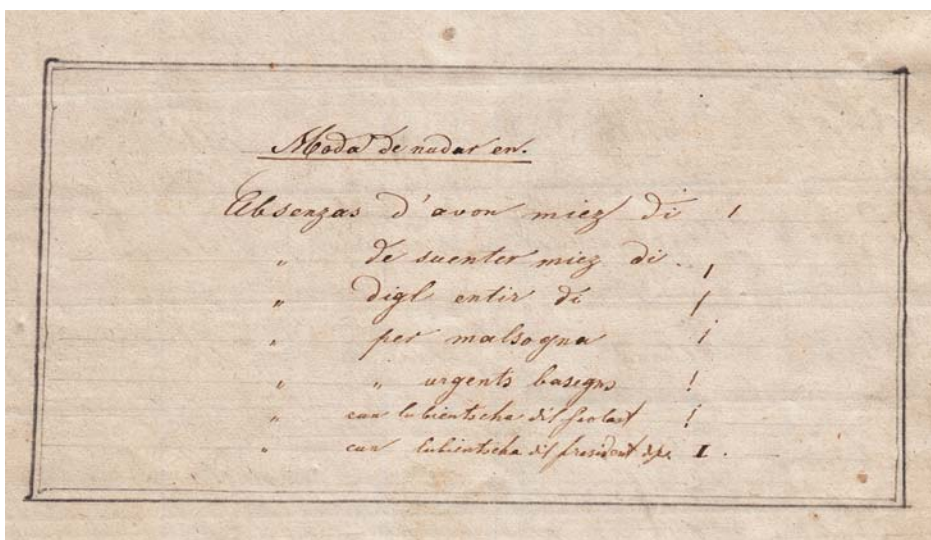 Moda de nudar en.
Absenzas d'avon miez di ╵
" de suenter miez di. ╷
" digl entir di /
" per malsogna i
" " urgents basegns !
" cun lubientscha dil scolast ¡
" cun lubientscha dil president I.